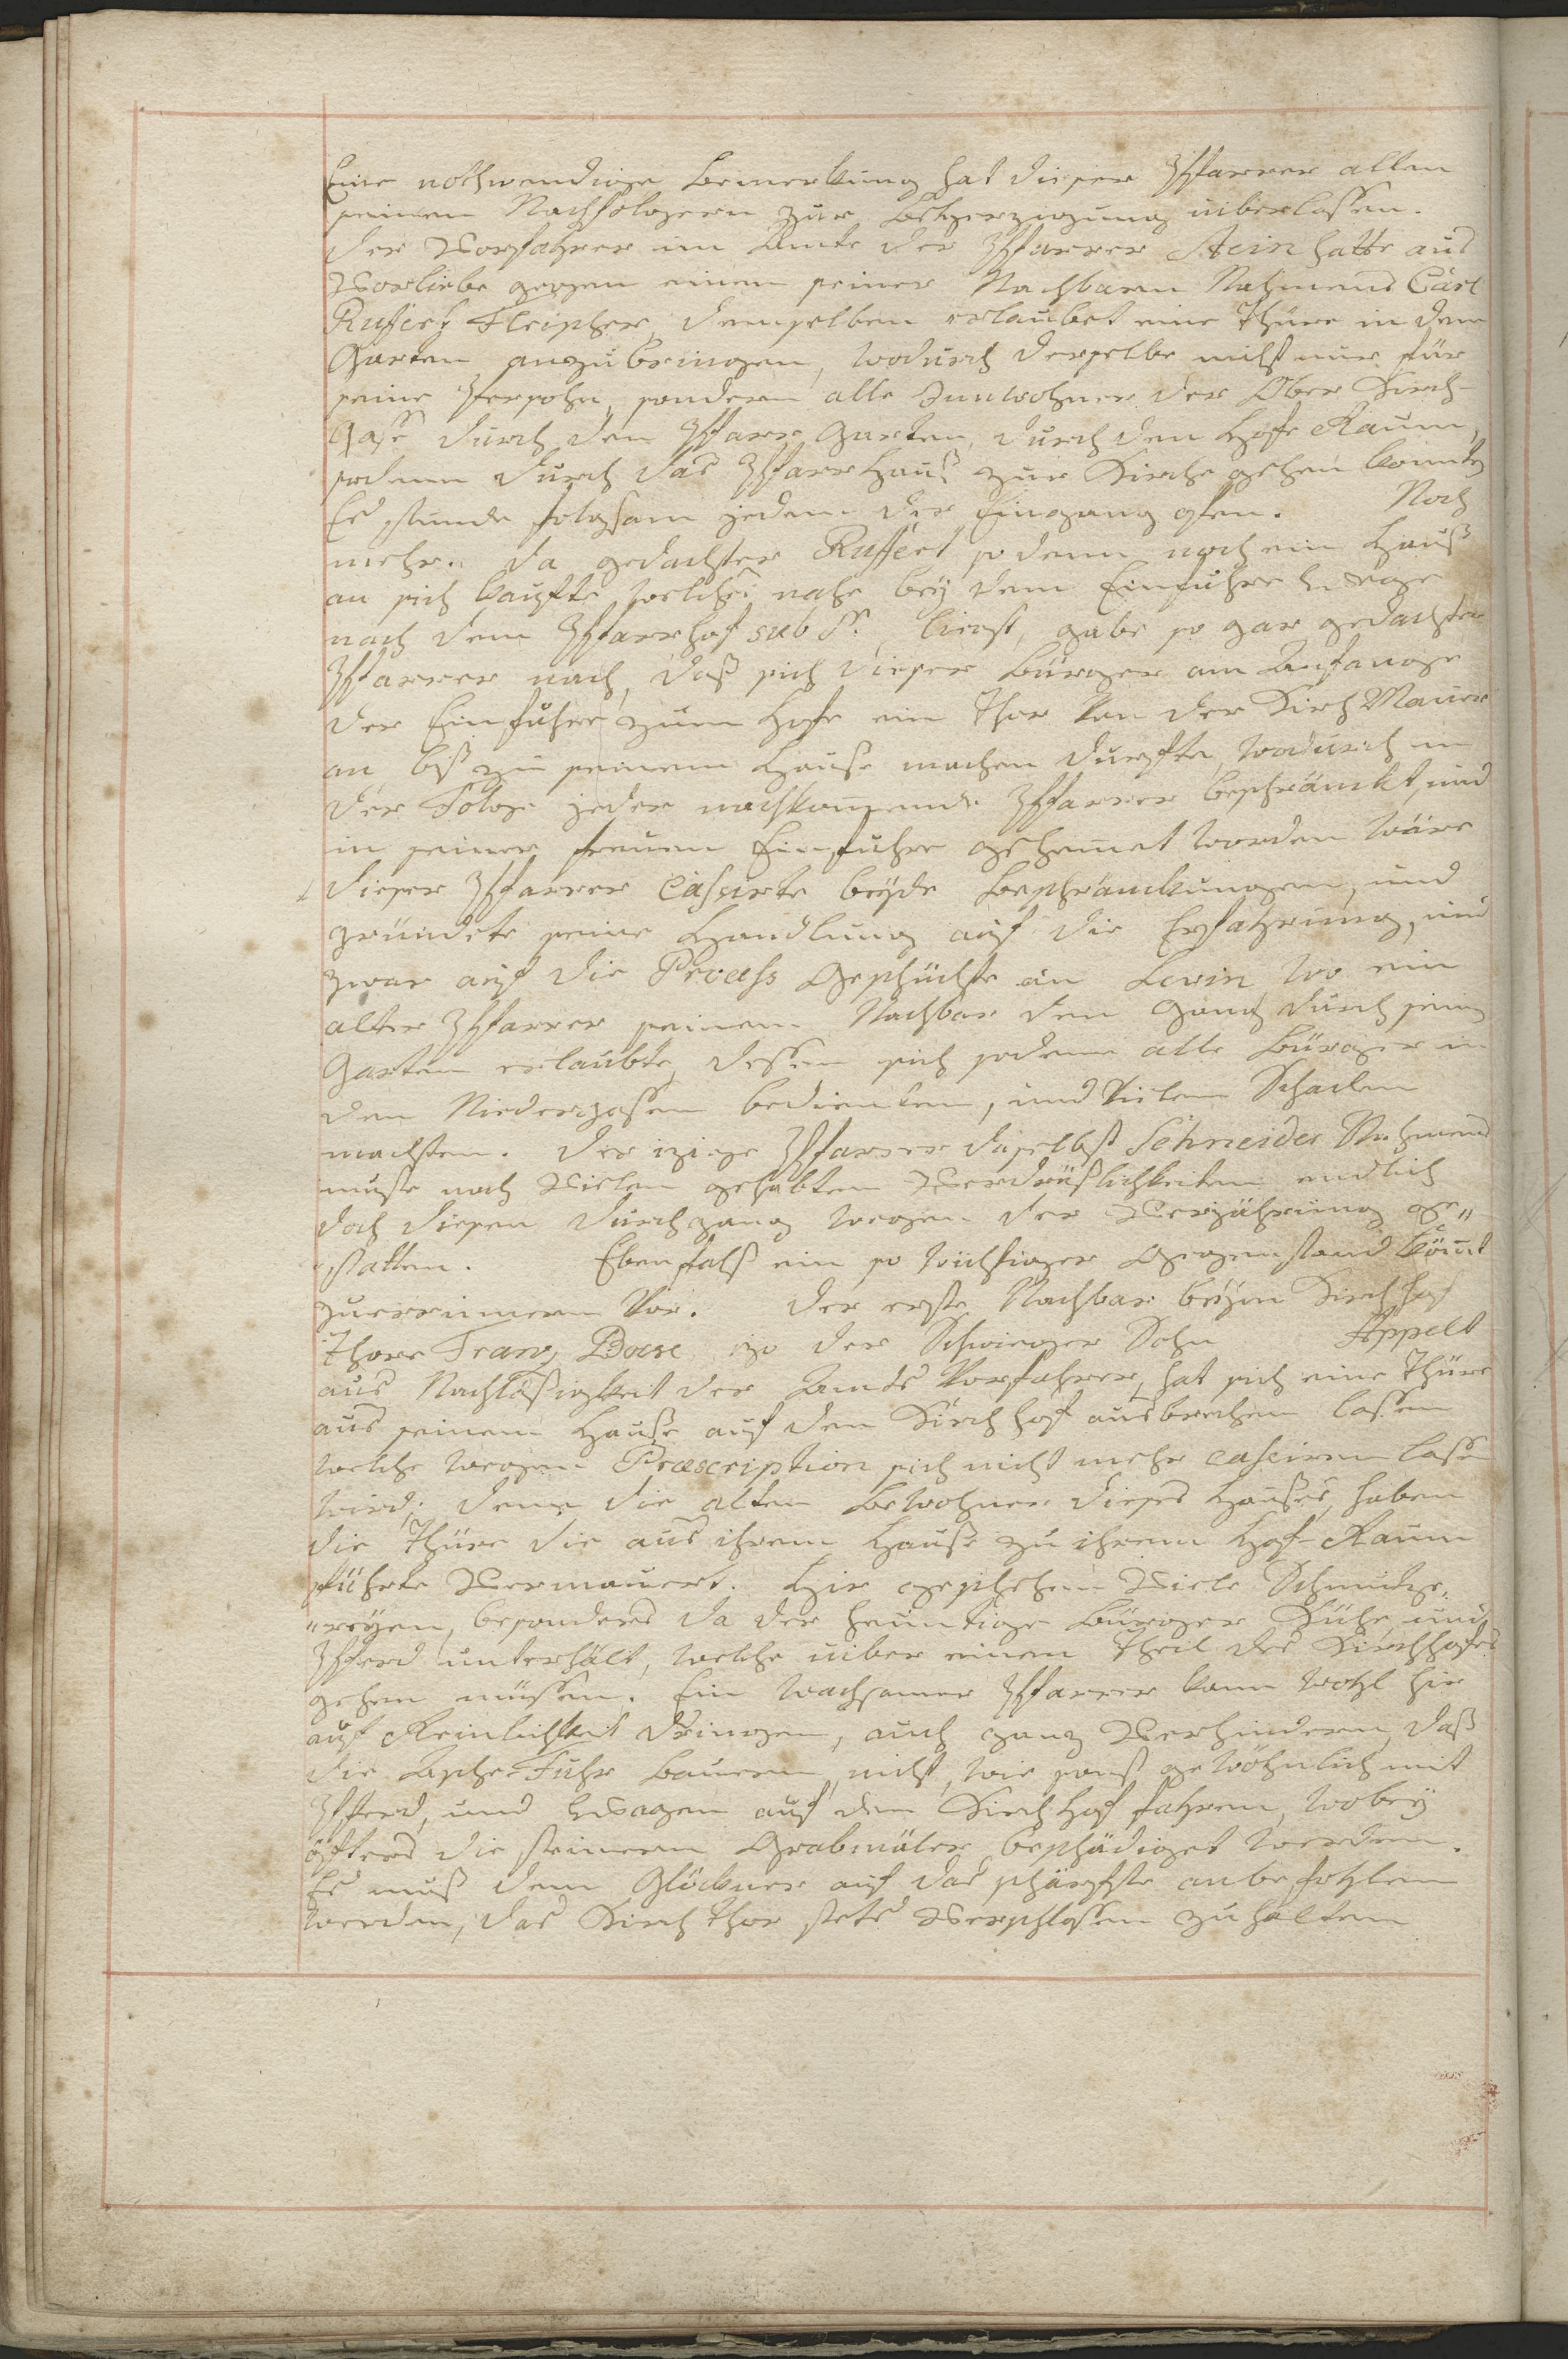 Eine nothwendige Bemerkung hat dieser Pfarrer allen
seinen Nachfolgern zur Beherzigung uiberlassen.
Der Vorfahrer im Amte der Pfarrer Stein hatte aus
Vorliebe gegen einen seiner Nachbarn Nahmens Carl
Ruffert Fleischer, demselben erlaubet eine Thüre in dem
Garten anzubringen, wodurch derselbe nicht nur für
seine Persohn, sondern alle Innwohner der Ober Kirch-
Gasse durch den Pfarr Garten, durch den Hofe Raum,
sodenn durch das Pfarr Hauß zur Kirche gehen konnte
Es stunde folgsam jedem der Eingang offen. Noch
mehr. Da gedachter Ruffert sodenn noch ein Hauß
an sich kaufte welches nahe bey dem Einfuhrs Weege
nach dem Pfarrhof sub N: liegt, gabe so gar gedachter
Pfarrer nach, daß sich dieser Bürger am Anfange
der Einfuhre zum Hofe ein Thor von der Kirch Mauer
an bis zu seinem Hause machen durfte, wodurch in
der Folge jeder nachkom̄ende Pfarrer beschränkt, und
in seiner freuen Einfuhre gehem̄et worden wäre
Dieser Pfarrer cassirte beyde Beschränkungen, und
gründete seine Handlung auf die Erfahrung, und
zwar auf die Process Geschichte in Lewin, wo ein
alter Pfarrer seinem Nachbar den Gang durch seinen
Garten erlaubte, dessen sich sodenn alle Bürger in
den Niedergassen bedienten, und vielen Schaden
machten. Der izige Pfarrer daselbst Schneider Nahmens
muste nach Vielen gehabten Verdrüßlichkeiten endlich
doch diesen Durchgang wegen der Verjährung ge„
„statten. Ebenfalß ein so wichtiger Gegenstand köm̄t
zuerrinnern vor. Der erste Nachbar beym Kirchhof
Thore Franz Boese izo der Schwieger Sohn Appelt
aus Nachläßigkeit der Amts Vorfahrer, hat sich eine Thüre
aus seinem Hause auf den Kirchhof ausbrechen lassen
welche wegen Præscription sich nicht mehr cassiren lassen
wird; denn die alten Bewohner dieses Hauses, haben
die Thüre die aus ihrem Hause zu ihrem Hof-Raum
führte Vermauert. Hir geschehen Viele Schmutze„
„reyen, besonders da der heuntige Bürger Kühe und
Pferd unterhält, welche uiber einen Theil des Kirchhofes
gehen müssen. Ein wachsamer Pfarrer kann wohl hir
auf Reinlichkeit dringen, auch ganz Verhindern, daß
die Asche-Fuhr Bauern, nicht, wie sonst gewöhnlich mit
Pferd, und Wagen auf den Kirchhof fahren, wobey
öfters die steinern Grabmäler beschädiget werden.
Es muß dem Glöckner auf das schärfste anbefohlen
werden, das Kirch Thor stets Verschlossen zuhalten